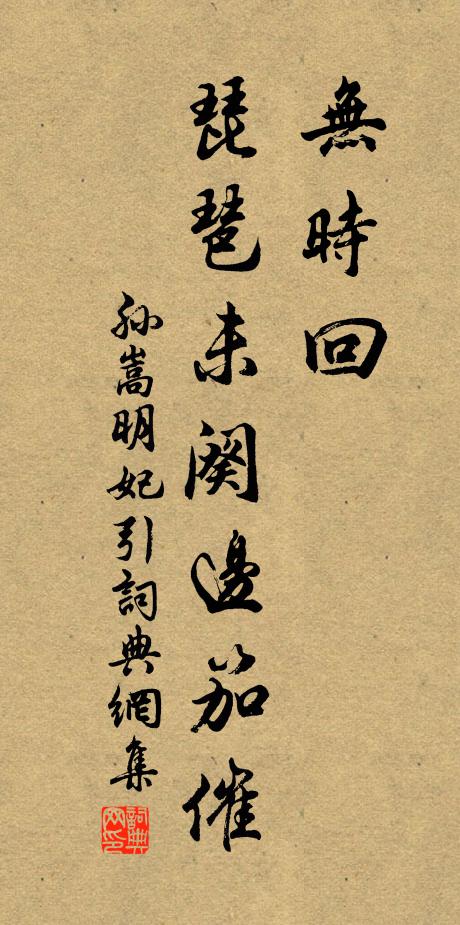 無時回
琵琶未闋邊笳催
孫嵩明妃引詞典網集
詞典网印